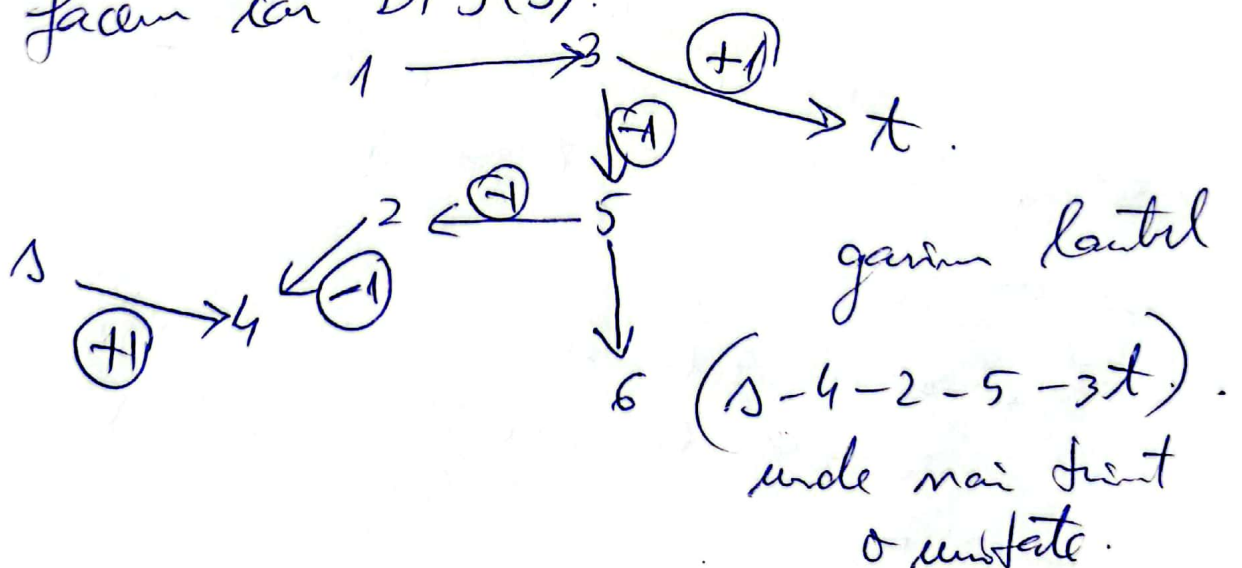 facem iar DFS(s).
1 3 +1 t.
-1
2 -1 5
s +1 4 -1
găsim lanțul
6 (s-4-2-5-3t).
unde mai trimit
o unitate.